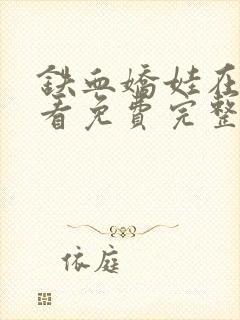 铁血娇娃在
看免费完整
依庭